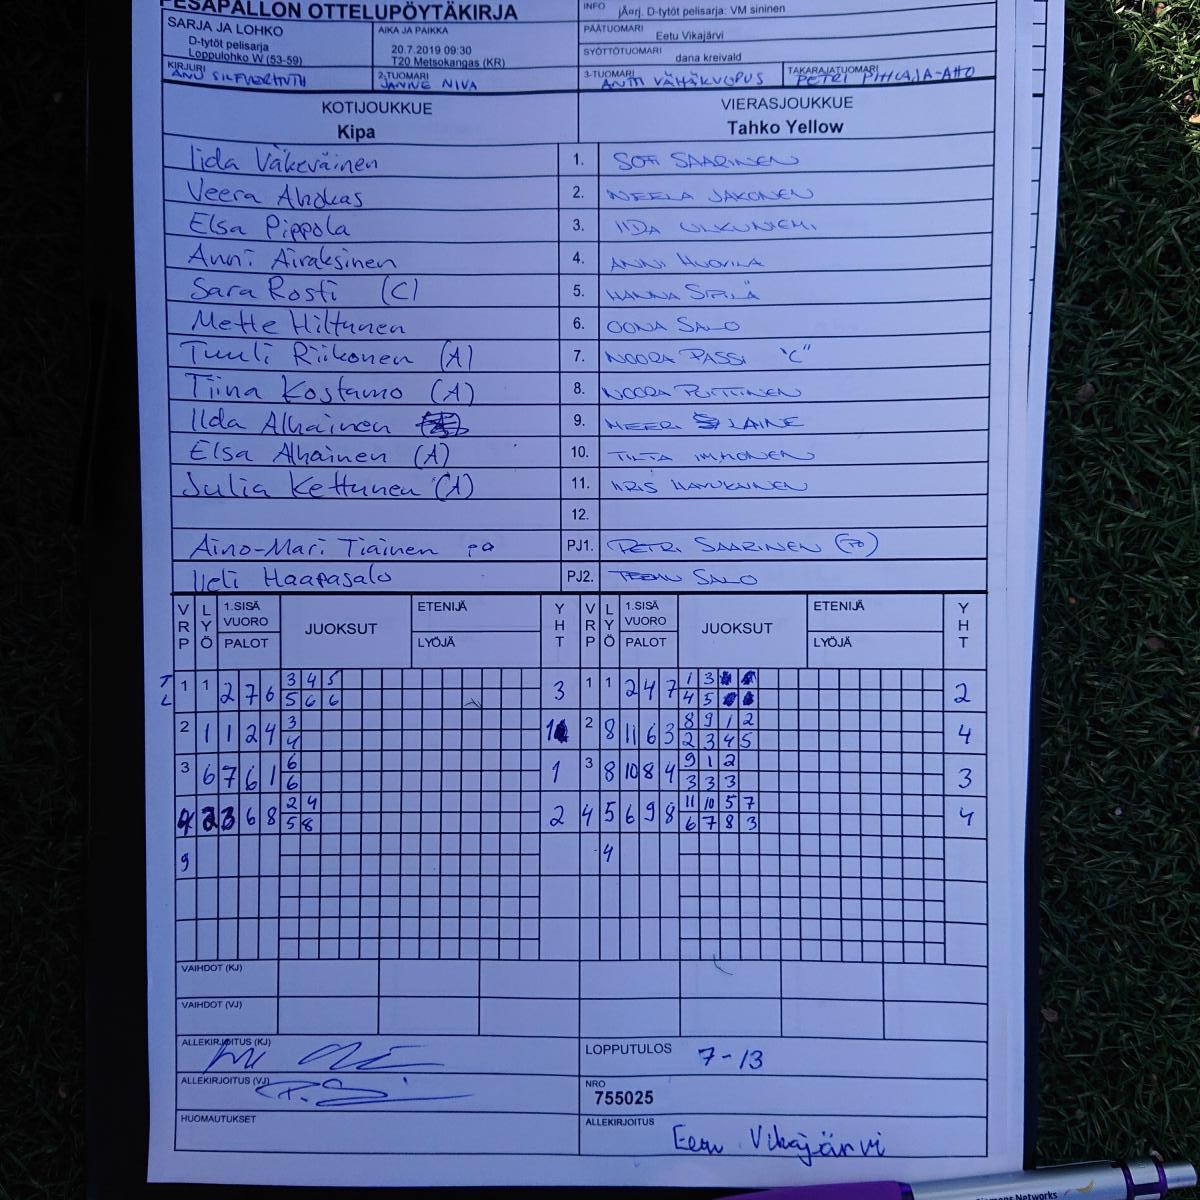 PESÄPALLON OTTELUPÖYTÄKIRJA
INFO jÄarj. D-tytöt pelisarja: VM sininen
SARJA JA LOHKO
D-tytöt pelisarja
Loppulohko W (53-59)
AIKA JA PAIKKA
20.7.2019 09:30
T20 Metsokangas (KR)
PÄÄTUOMARI Eetu Vikajärvi
SYÖTTÖTUOMARI dana kreivald
KIRJURI
2-TUOMARI JANINE NIVA
3-TUOMARI ANTTI VÄHÄKUOPUS
TAKARAJATUOMARI PETRI PIHLAJA-AHO
KOTIJOUKKUE VIERASJOUKKUE
Kipa Tahko Yellow
Iida Väkeväinen 1. SOFI SAARINEN
Veera Ahokas 2. NEELA JAKONEN
Elsa Pippola 3. IIDA ULKUNIEMI
Anni Airaksinen 4. ANNI HUOVILA
Sara Rosti (C) 5. HANNA SIPILÄ
Mette Hiltunen 6. OONA SALO
Tuuli Riikonen (A) 7. NOORA PASSI "C"
Tiina Kostamo (A) 8. NOORA
Ilda Alhainen 9. MEERI LAINE
Elsa Alhainen (A) 10. IMMONEN
Julia Kettunen (A) 11. IIRIS HAVUKAINEN
12.
Aino-Mari Tiainen PJ1. PETRI SAARINEN
Haapasalo PJ2. SALO
VRP LYÖ 1.SISÄ VUORO PALOT JUOKSUT ETENIJÄ LYÖJÄ YHT VRP LYÖ 1.SISÄ VUORO PALOT JUOKSUT ETENIJÄ LYÖJÄ YHT
T 3 4 5 1 3
L 1 1 2 7 6 5 6 6 3 1 1 2 4 7 4 5 2
2 1 1 2 4 3 1 2 8 11 6 3 8 9 1 2 4
4 2 3 4 5
3 6 7 6 1 6 1 3 8 10 8 4 9 1 2 3
6 3 3 3
3 6 8 2 4 2 4 5 6 9 8 11 10 5 7 4
5 8 6 7 8 3
9 4
VAIHDOT (KJ)
VAIHDOT (VJ)
ALLEKIRJOITUS (KJ) LOPPUTULOS 7-13
ALLEKIRJOITUS (VJ) NRO
755025
HUOMAUTUKSET ALLEKIRJOITUS
Eetu Vikajärvi
Networks